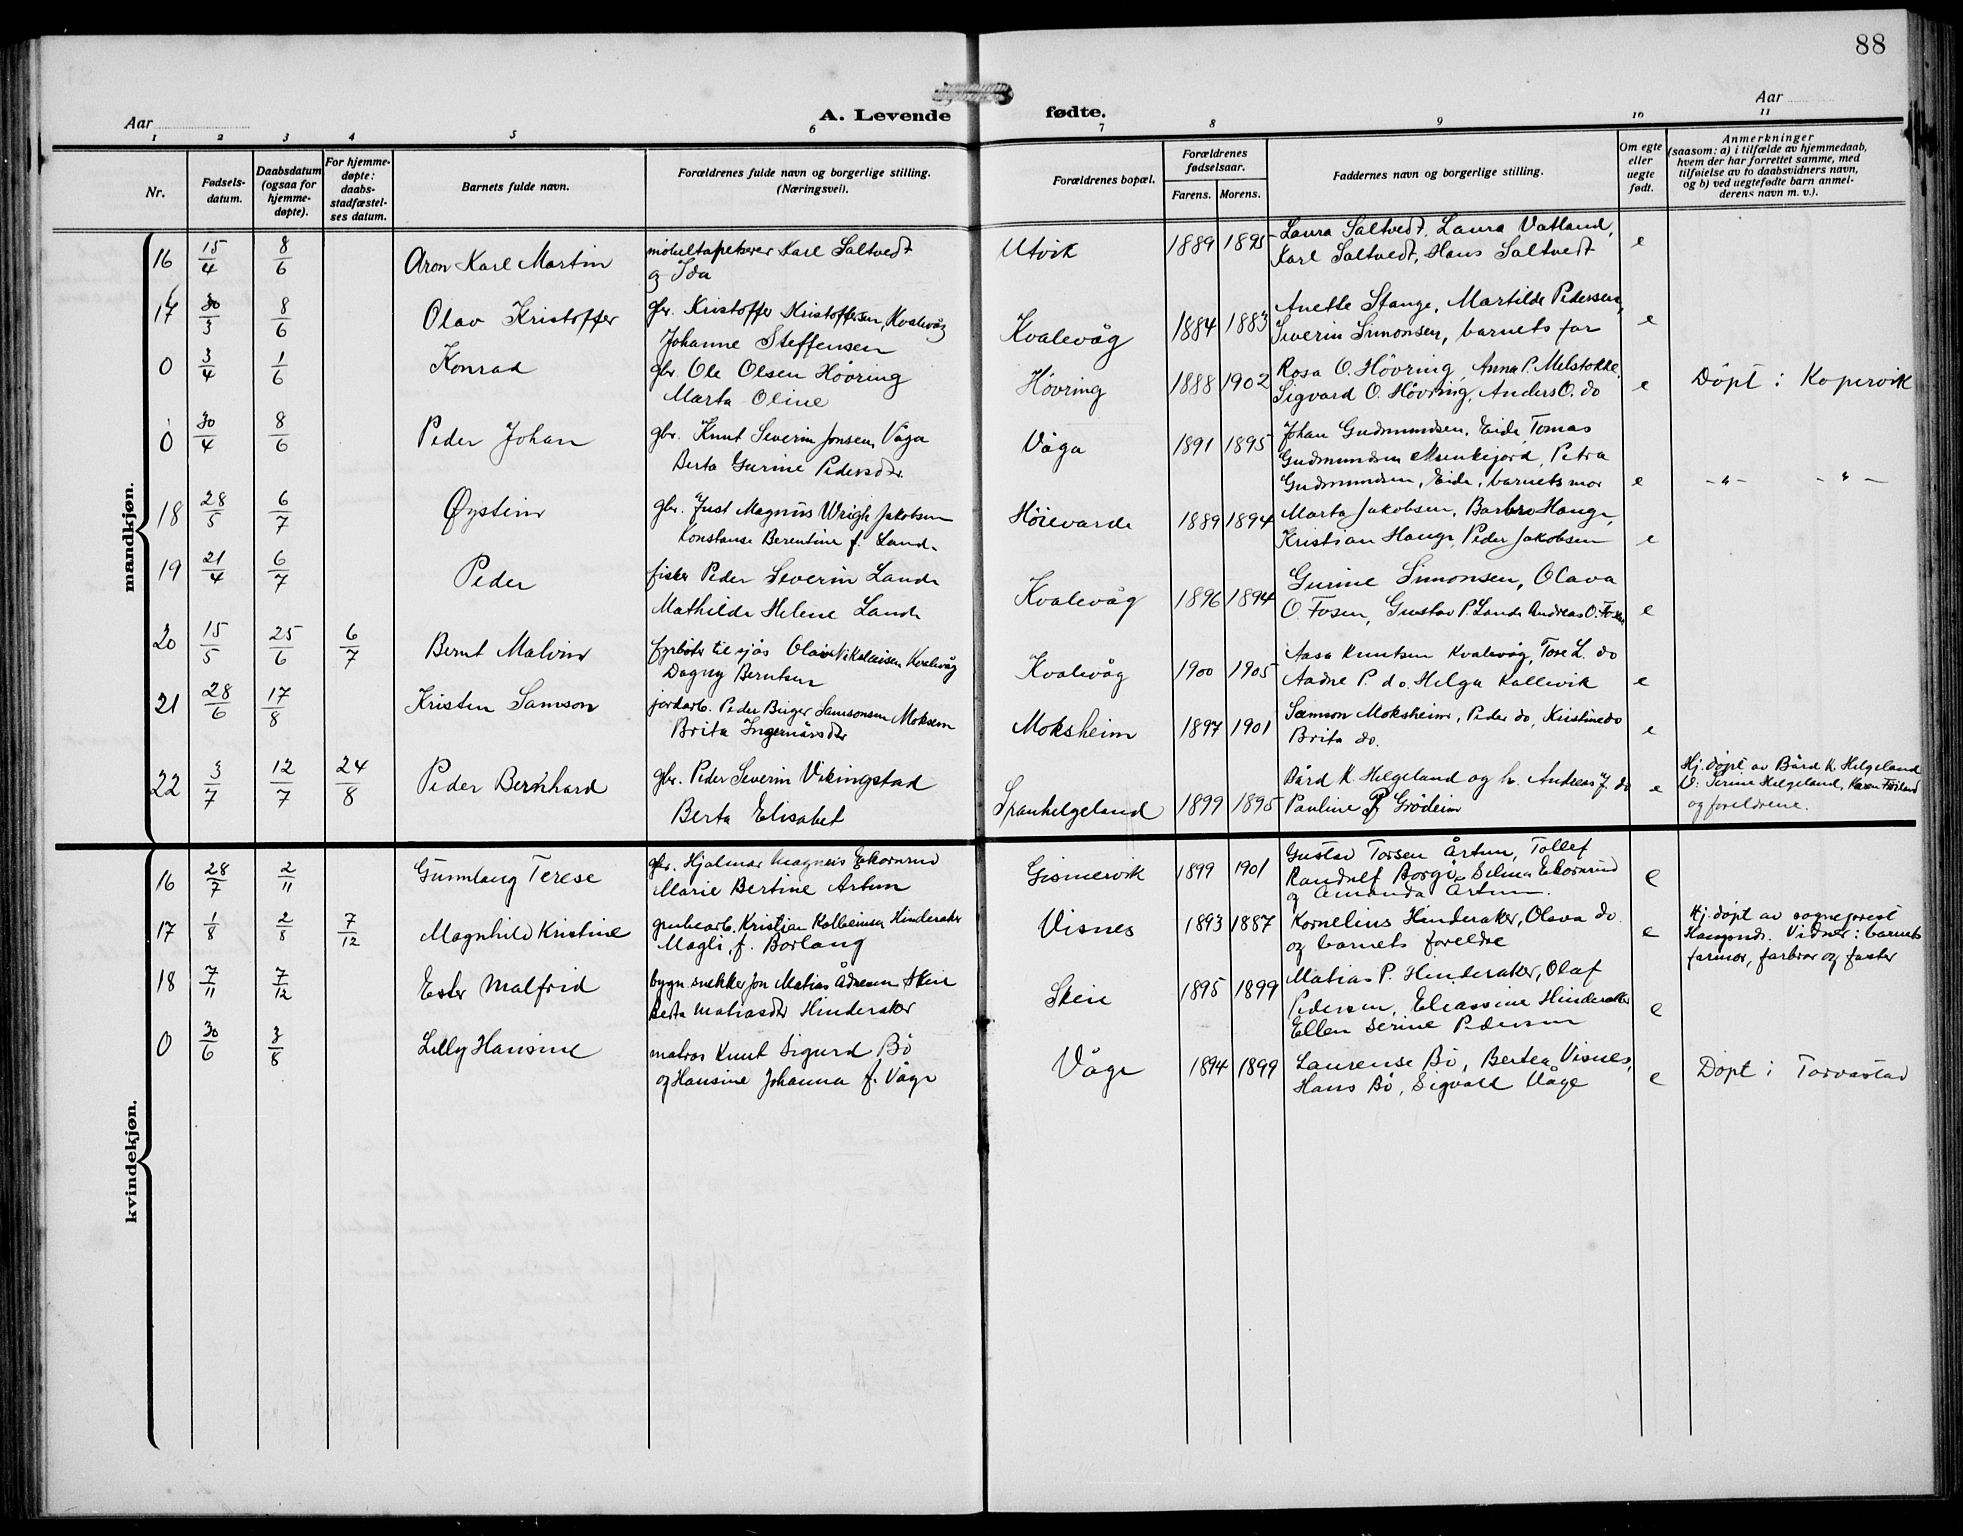 88
A. Levende fødte.
Aar
Aar
1 2 3 4 5 6 7 8 9 10 11
Nr.
Fødsels-
datum.
Daabsdatum
(ogsaa for
hjemme-
døpte).
For hjemme-
døpte:
daabs-
stadfæstel-
ses datum.
Barnets fulde navn.
Forældrenes fulde navn og borgerlige stilling.
(Næringsvei).
Forældrenes bopæl.
Forældrenes
fødselsaar.
Farens. Morens.
Faddernes navn og borgerlige stilling.
Om egte
eller
uegte
født.
Anmerkninger
(saasom: a) i tilfælde av hjemmedaab,
hvem der har forrettet samme, med
tilføielse av to daabsvidners navn,
og b) ved uegtefødte barn anmel-
derens navn m. v.).
mandkjøn.
16 15/4 8/6 Aron Karl Martin møbeltapetserer Karl Saltvedt
og Ida
Utvik 1889 1895 Laura Saltvedt, Laura Vatland,
Karl Saltvedt, Hans Saltvedt e
17 30/3 8/6 Olav Kristoffer gbr. Kristoffer Kristoffersen, Kvalevåg
Johanne Steffensen
Kvalevåg 1884 1883 Anette Stange, Martilde Pedersen,
Severin Simonsen, barnets far e
0 3/4 1/6 Konrad gbr. Ole Olsen Hövring
Marta Oline
Hövring 1888 1902 Rosa O. Hövring, Anna P. Melstokke,
Sigvard O. Hövring, Anders O. do e Döpt i Kopervik
0 30/4 8/6 Peder Johan gbr. Knut Severin Jonsen Våga
Berta Gurine Pedersdtr.
Våga 1891 1895 Johan Gudmundsen, Eide, Tomas
Gudmundsen Munkejord, Petra
Gudmundsen, Eide, barnets mor e -"- -"-
18 28/5 6/7 Øystein gbr. Just Magnus Wrigh Jakobsen
Konstanse Berentine f. Lande
Höievarde 1889 1894 Marta Jakobsen, Barbro Hauge,
Kristian Hauge, Peder Jakobsen e
19 21/4 6/7 Peder fisker Peder Severin Lande
Mathilde Helene Lande
Kvalevåg 1896 1894 Gurine Simonsen, Olava
O. Fosen, Gustav P. Lande Andreas O. Fosen e
20 15/5 25/6 6/7 Bernt Malvin fyrböter til sjös Olai Nikolaisen Kvalevåg
Dagny Berntsen
Kvalevåg 1900 1905 Aasa Knutsen Kvalevåg, Tore L. do
Aadne P. do. Helga Kallevik e
21 28/6 17/8 Kristen Samson jordarb. Peder Birger Samsonsen Moksem
Brita Ingemårsdtr
Moksheim 1897 1901 Samson Moksheim, Peder do, Kristine do
Brita do. e
22 3/7 12/7 24/8 Peder Bernhard gbr. Peder Severin Vikingstad
Berta Elisabet
Spanhelgeland 1899 1895 Bård K. Helgeland og h. Andreas J. do
Pauline P Grödeim e Hj. döpt av Bård K. Helgeland
V: Serine Helgeland, Karen
og foreldrene.
kvindekjøn.
16 28/7 2/11 Gunnlaug Terese gbr. Hjalmar Magnus Ekornrud
Marie Bertine Artun
Gismervik 1899 1901 Gustav Torsen Årtun, Tollef
Randulf Borgö, Selma Ekornrud
og Amanda Årtun. e
17 1/8 2/8 7/12 Magnhild Kristine grubearb. Kristian Kolbeinsen Hinderaker
Magli, f. Borlaug
Visnes 1893 1887 Kornelius Hinderaker, Olava do.
og barnets foreldre e Hj. döpt av sogneprest
Vidner: barnets
farmor, farbror og faster
18 7/11 7/12 Ester Malfrid bygn. snekker Jon Matias Ådnesen Skeie
Berta Matiasdtr Hinderaker
Skeie 1895 1899 Matias P. Hinderaker, Olaf
Pedersen, Eliassine Hinderaker
Ellen Serine Pedersen e
0 30/6 3/8 Lilly Hansine matros Knut Sigurd Bö
og Hansine Johanna f. Våge
Våge 1894 1899 Laurense Bö, Bertea Visnes,
Hans Bö, Sigvald Våge e Döpt i Torvastad